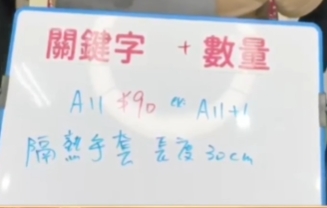 關鍵字 + 數量
A11 $90 or A11+1
隔熱手套 長度30cm